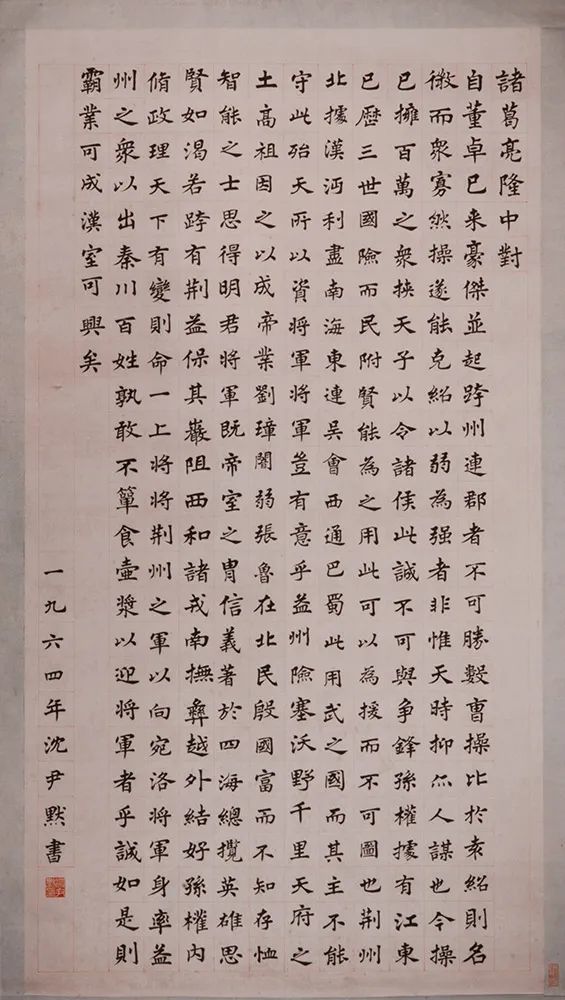 諸葛亮隆中對
自董卓已来豪傑並起跨州連郡者不可勝數曹操比於袁紹則名
微而衆寡然操遂能克紹以弱為强者非惟天時抑亦人謀也今操
已擁百萬之衆挾天子以令諸侯此誠不可與争鋒孫權據有江東
已歷三世國險而民附賢能為之用此可以為援而不可圖也荆州
北據漢沔利盡南海東連吴會西通巴蜀此用武之國而其主不能
守此殆天所以資将軍将軍豈有意乎益州險塞沃野千里天府之
土高祖因之以成帝業劉璋闇弱張魯在北民殷國富而不知存恤
智能之士思得明君将軍既帝室之胄信義著於四海總攬英雄思
賢如渴若跨有荆益保其巖阻西和諸戎南撫彝越外結好孫權内
脩政理天下有變則命一上将将荆州之軍以向宛洛将軍身率益
州之衆以出秦川百姓孰敢不簞食壺漿以迎将軍者乎誠如是則
霸業可成漢室可興矣
一九六四年沈尹默書